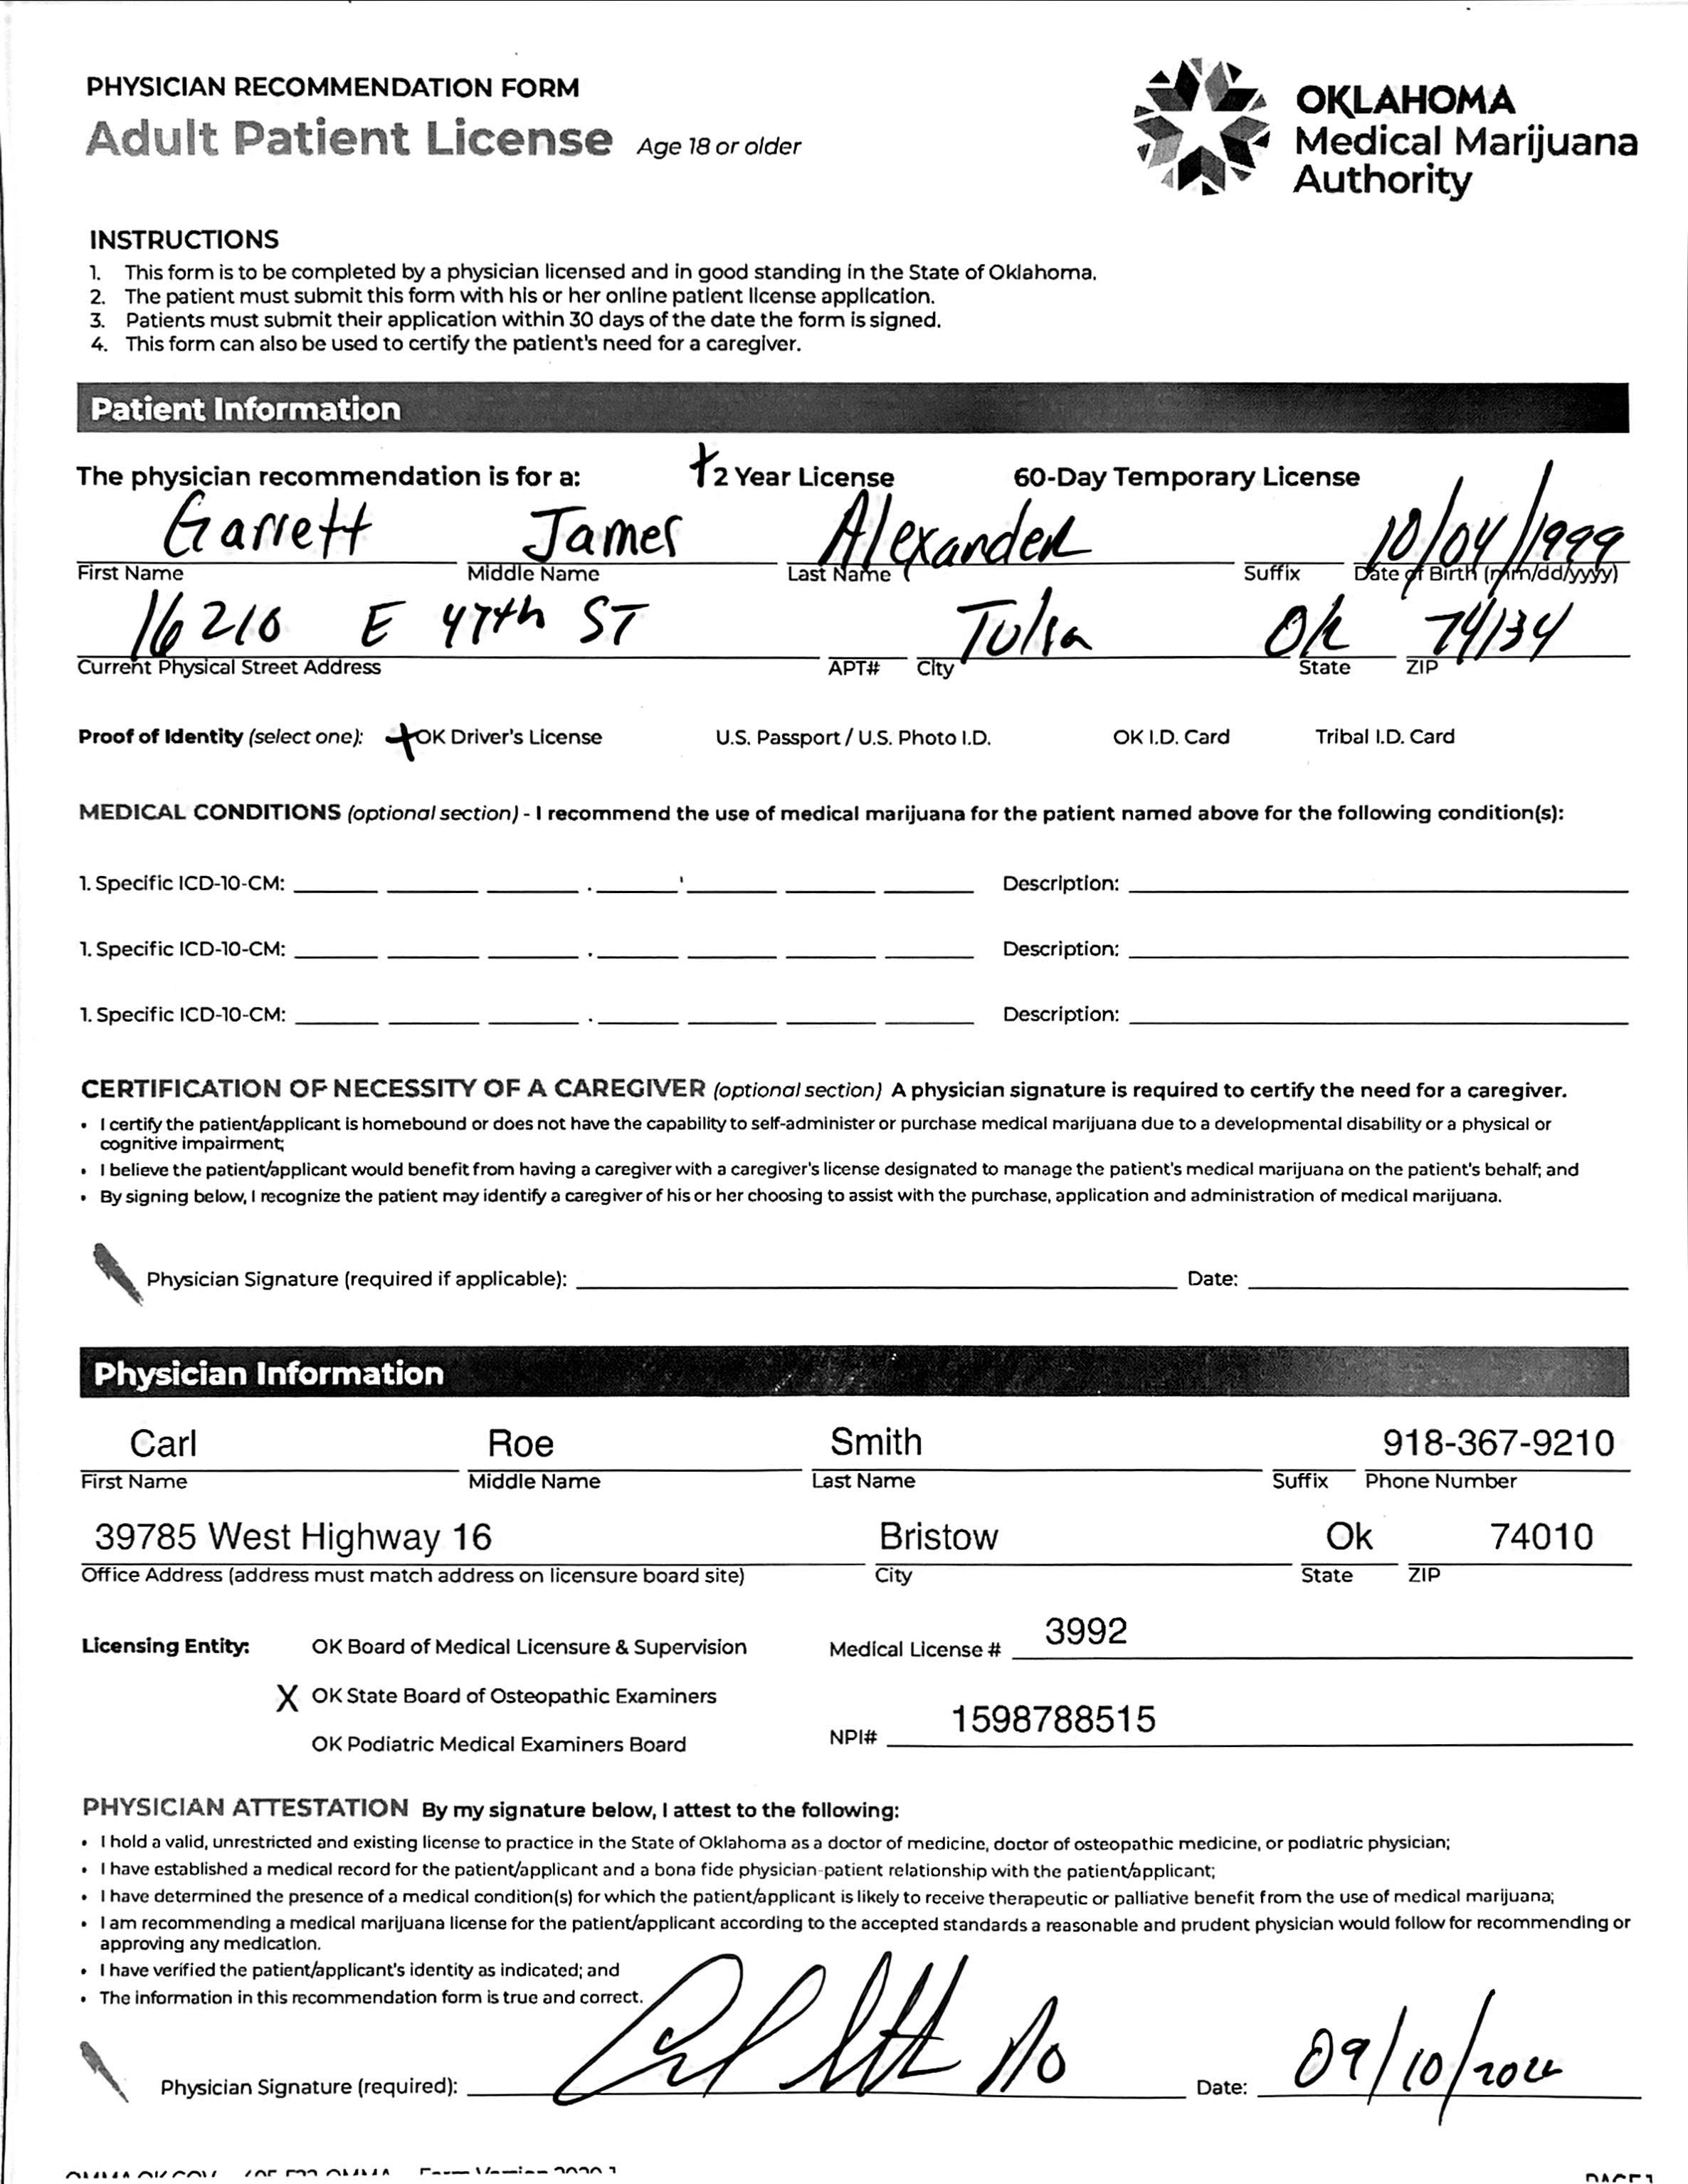 PHYSICIAN RECOMMENDATION FORM
Adult Patient License Age 18 or older
OKLAHOMA
Medical Marijuana
Authority
INSTRUCTIONS
1. This form is to be completed by a physician licensed and in good standing in the State of Oklahoma.
2. The patient must submit this form with his or her online patient license application.
3. Patients must submit their application within 30 days of the date the form is signed.
4. This form can also be used to certify the patient's need for a caregiver.
Patient Information
The physician recommendation is for a: 2 Year License 60-Day Temporary License
Garrett James Alexander 10/04/1999
First Name Middle Name Last Name Suffix Date of Birth (mm/dd/yyyy)
16210 E 47th ST Tulsa Ok 74134
Current Physical Street Address APT# City State ZIP
Proof of Identity (select one): OK Driver's License U.S. Passport / U.S. Photo I.D. OK I.D. Card Tribal I.D. Card
MEDICAL CONDITIONS (optional section) - I recommend the use of medical marijuana for the patient named above for the following condition(s):
1. Specific ICD-10-CM: Description:
1. Specific ICD-10-CM: Description:
1. Specific ICD-10-CM: Description:
CERTIFICATION OF NECESSITY OF A CAREGIVER (optional section) A physician signature is required to certify the need for a caregiver.
• I certify the patient/applicant is homebound or does not have the capability to self-administer or purchase medical marijuana due to a developmental disability or a physical or
cognitive impairment;
• I believe the patient/applicant would benefit from having a caregiver with a caregiver's license designated to manage the patient's medical marijuana on the patient's behalf; and
• By signing below, I recognize the patient may identify a caregiver of his or her choosing to assist with the purchase, application and administration of medical marijuana.
Physician Signature (required if applicable): Date:
Physician Information
Carl Roe Smith 918-367-9210
First Name Middle Name Last Name Suffix Phone Number
39785 West Highway 16 Bristow Ok 74010
Office Address (address must match address on licensure board site) City State ZIP
Licensing Entity: OK Board of Medical Licensure & Supervision Medical License # 3992
X OK State Board of Osteopathic Examiners
OK Podiatric Medical Examiners Board NPI# 1598788515
PHYSICIAN ATTESTATION By my signature below, I attest to the following:
• I hold a valid, unrestricted and existing license to practice in the State of Oklahoma as a doctor of medicine, doctor of osteopathic medicine, or podiatric physician;
• I have established a medical record for the patient/applicant and a bona fide physician-patient relationship with the patient/applicant;
• I have determined the presence of a medical condition(s) for which the patient/applicant is likely to receive therapeutic or palliative benefit from the use of medical marijuana;
• I am recommending a medical marijuana license for the patient/applicant according to the accepted standards a reasonable and prudent physician would follow for recommending or
approving any medication.
• I have verified the patient/applicant's identity as indicated; and
• The information in this recommendation form is true and correct.
Physician Signature (required): DO Date: 09/10/